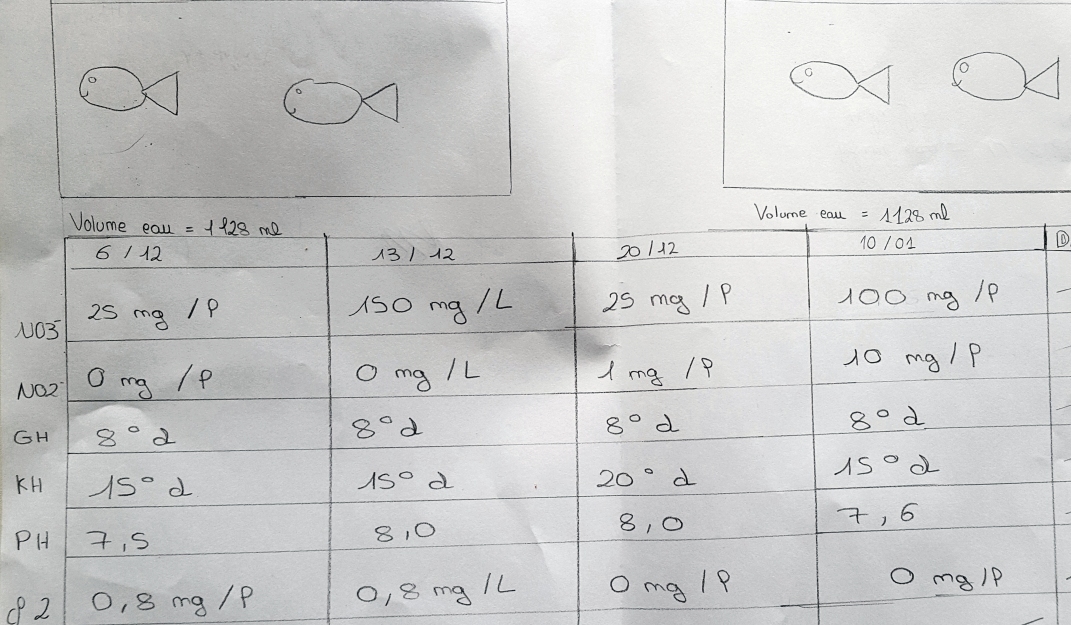 Volume eau = 1128 ml
Volume eau = 1128 ml
6 / 12 13 / 12 20 / 12 10 / 01 D
NO3⁻ 25 mg / l 150 mg / L 25 mg / l 100 mg / l
NO2⁻ 0 mg / l 0 mg / L 1 mg / l 10 mg / l
GH 8° d 8° d 8° d 8° d
KH 15° d 15° d 20° d 15° d
PH 7,5 8,0 8,0 7,6
cl 2 0,8 mg / l 0,8 mg / L 0 mg / l 0 mg / l